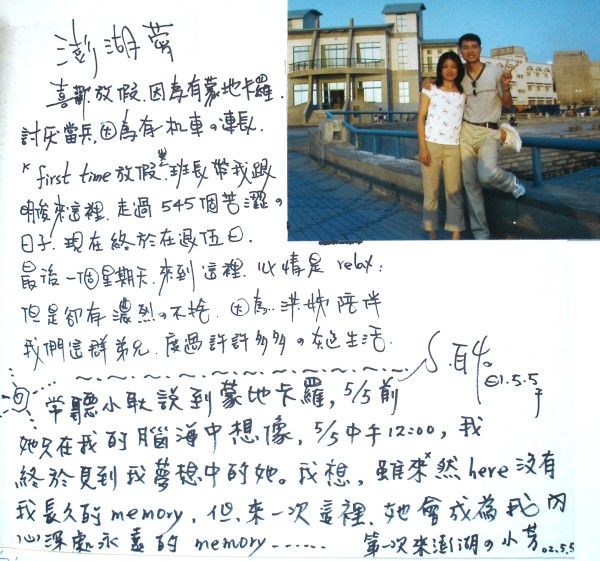 澎湖夢
喜歡放假.因為有蒙地卡羅.
討厌當兵.因為有机車の連長.
first time 放假.班長帶我跟
明俊來這裡.走過545個苦澀の
日子.現在終於在退伍日.
最後一個星期天.來到這裡.心情是 relax;
但是卻有濃烈の不捨. 因為.洪姊陪伴
我們這群弟兄.度過許許多多の灰色生活.
01.5.5
常聽小耿說到蒙地卡羅, 5/5前
她只在我的腦海中想像, 5/5中午12:00, 我
終於見到我夢想中的她。我想, 雖然here沒有
我長久的memory, 但.來一次這裡.她會成為我內
心深處永遠的 memory......
第一次來澎湖の小芳 02.5.5